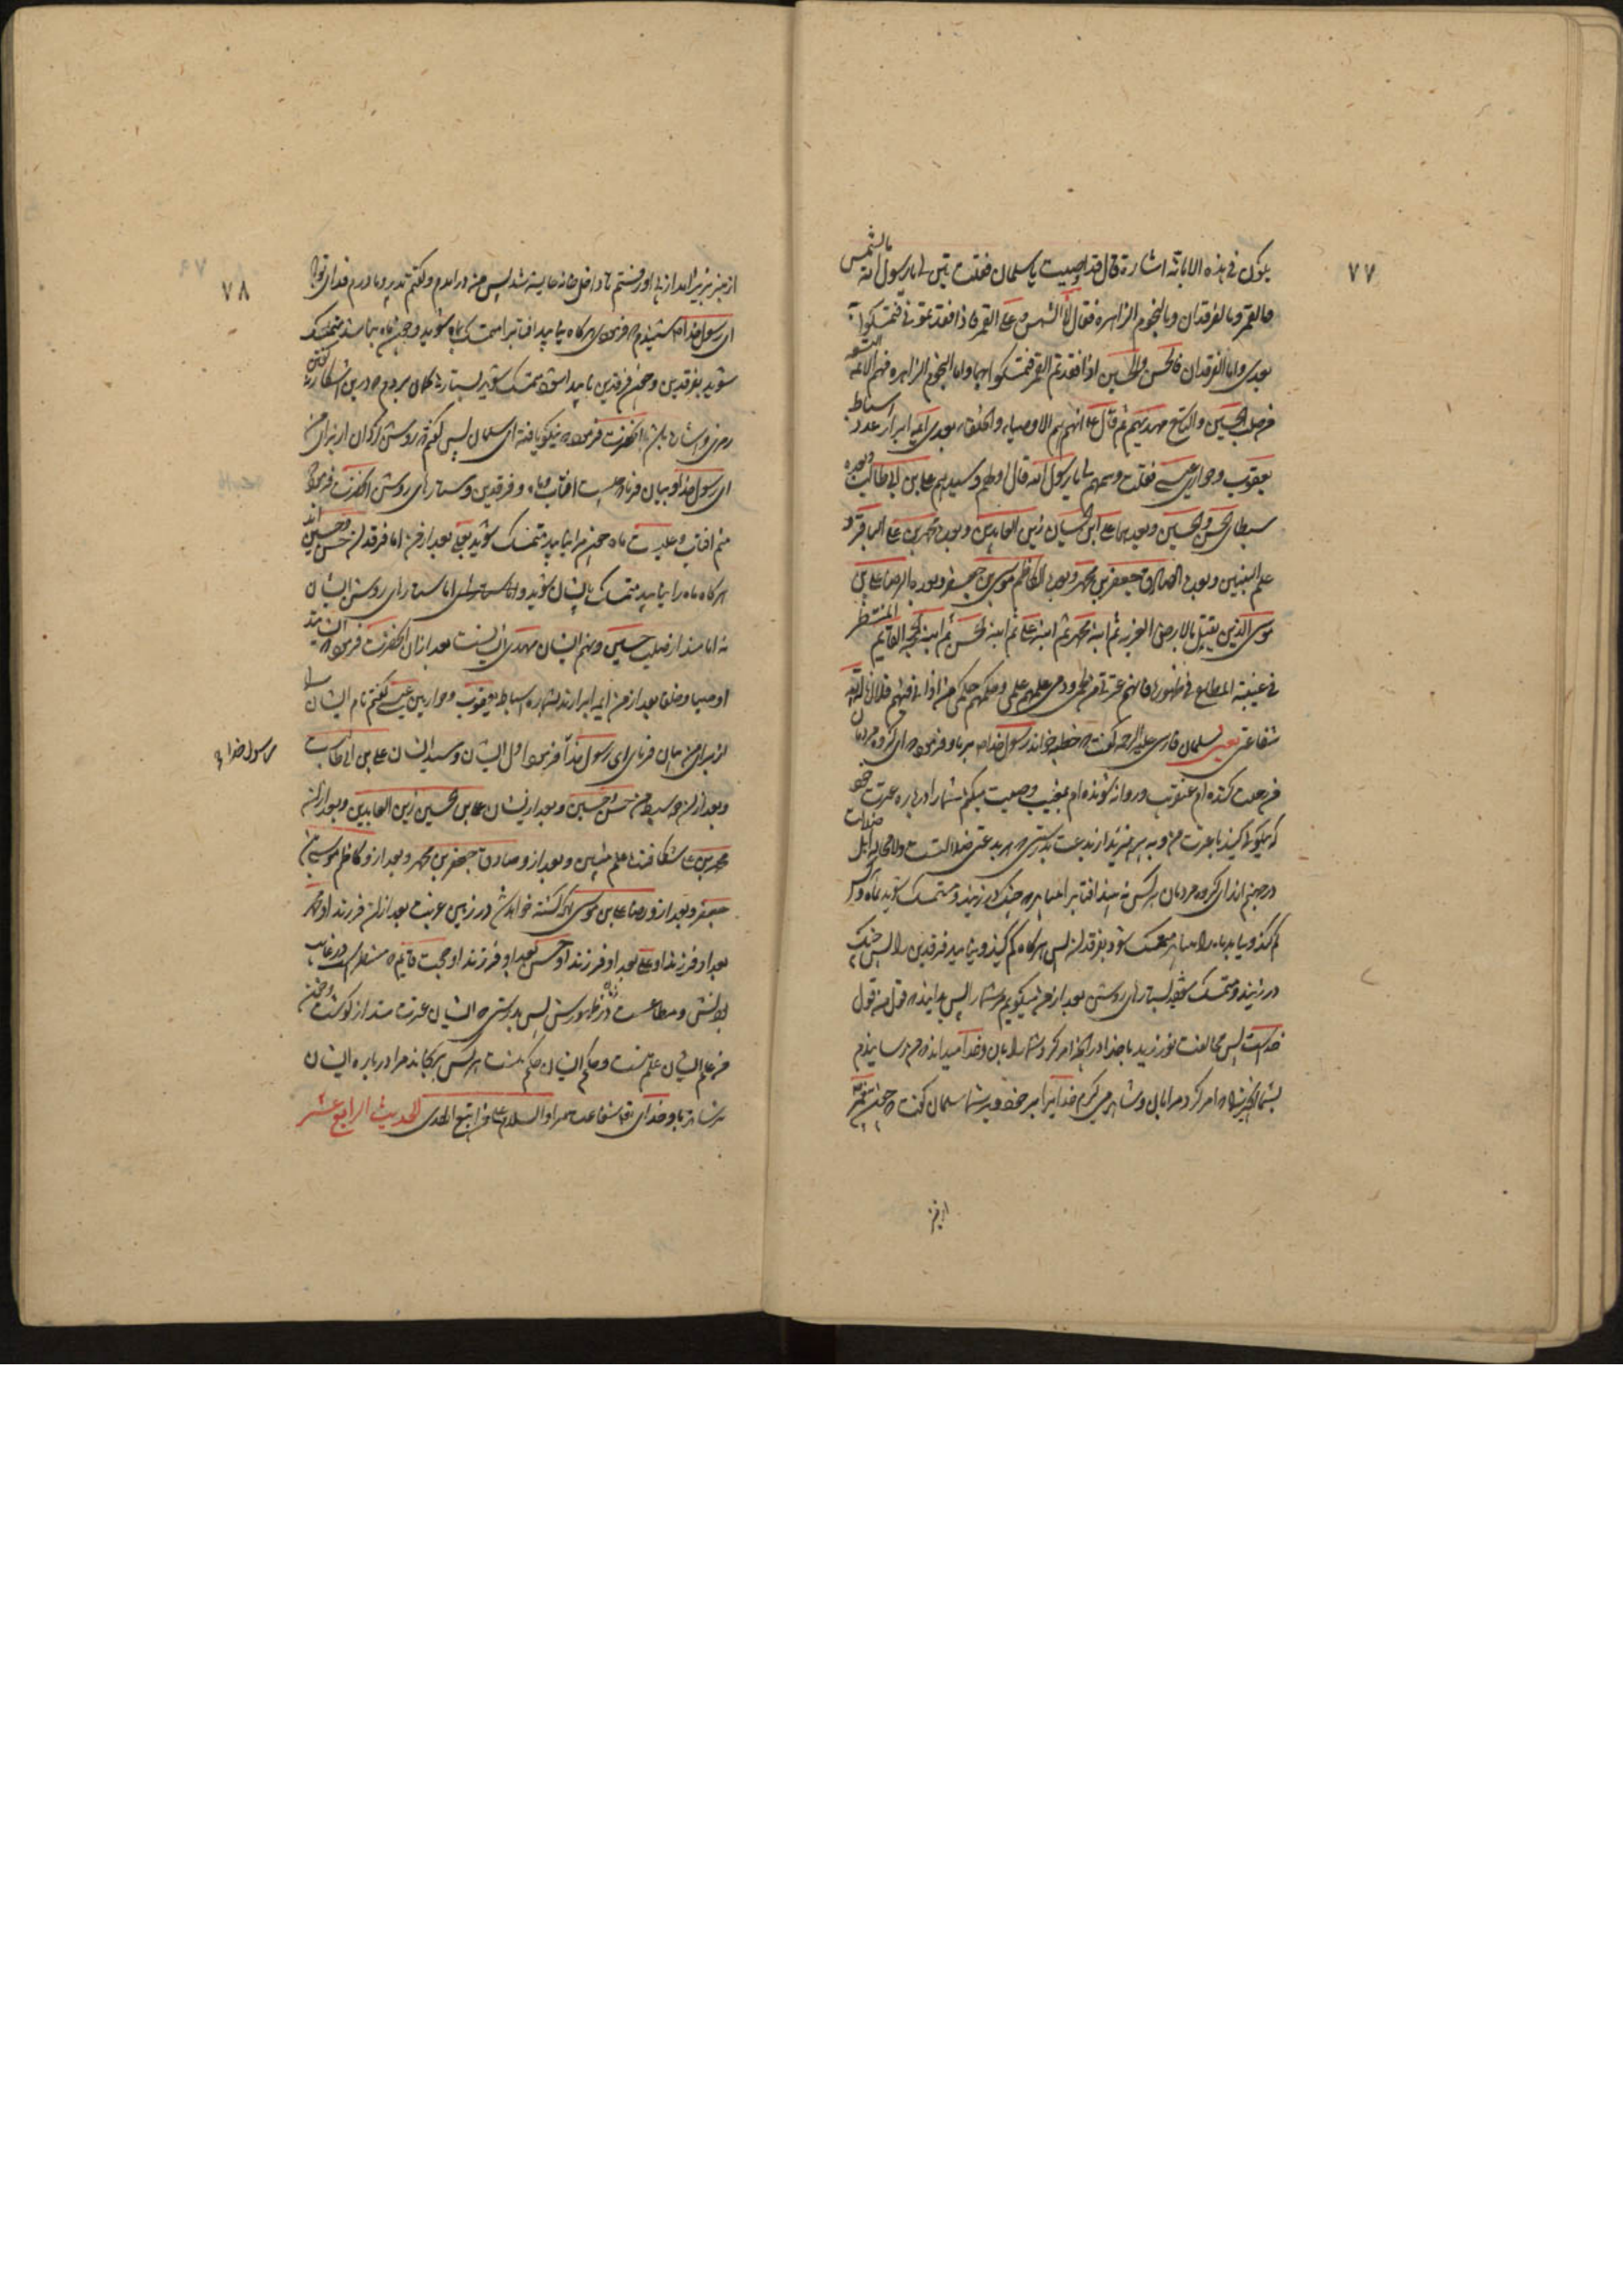 ۷۷
یکون فی هذه الابانة اشارة قال قد اصبت یا سلمان فقلت بین لی یا رسول الله ما الشمس
و القمر و ما الفرقدان و ما النجوم الزاهرة فقال انا الشمس و علی القمر فاذا فقدتمونی فتمسکوا به
بعدی و اما الفرقدان فالحسن و الحسین اذا فقدتم القمر فتمسکوا بهما و اما النجوم الزاهره فهم الائمه التسعه
من صلب الحسین و التاسع مهدیهم ثم قال ع انهم هم الاوصیاء و الخلفاء بعدی ائمة ابرار عدد اسباط
یعقوب و حواری عیسی فقلت و سمهم لی یا رسول الله قال اولهم و سیدهم علی بن ابی طالب و بعده
سبطای الحسن و الحسین و بعدهما علی بن الحسین زین العابدین و بعده محمد بن علی الباقر
علم النبیین و بعده الصادق جعفر بن محمد و بعده الکاظم موسی بن جعفر و بعده الرضا علی بن
موسی الذی یقتل بالارض الغربة ثم ابنه محمد ثم ابنه علی ثم ابنه الحسن ثم ابنه الحجة القایم المنتظر
فی غیبته المطاع فی ظهوره فانهم عترتی من لحمی و دمی علمهم علمی و حکمهم حکمی من اذانی فیهم فلا اناله الله
شفاعتی یعنی سلمان فارسی علیه الرحمه گفت که خطبه خواند رسول خدا بر ما و فرمود که ای گروه مردمان
من رحلت کننده ام عنقریب و روانه شونده ام بمغیب وصیت میکنم شما را در باره عترت خود
که نیکوئی کنید با عترت من و بپرهیزید از بدعت بدرستی که هر بدعتی ضلالتست و لا محاله اهل ضلالت
در جهنم اند ای گروه مردمان هر کس نه بیند افتاب را پس باید که چنگ در زنید و متمسک شوید بماه و هر کس
گم کند و نیابد ماه را پس باید متمسک شود بفرقدان پس هر گاه گم کنید و نیابید فرقدین را پس چنگ
در زنید و متمسک شوید بستارهای روشن بعد از من میگویم مر شما را پس بدانید که قول من قول
خداست پس مخالفت نورزید با خدا در انچه امر کرد شما را بان و خدا میداند که من رسانیدم
بشما انچیزی را که امر کرد مرا بان و شاهد میگیرم خدایرا بر خود و بر شما سلمان گفت که چون پیغمبر
از منبر
۷۸
از منبر بزیر امد از پی او رفتم تا داخل خانه عایشه شد پس من در امدم و گفتم پدر و مادرم فدای تو باد
ای رسول خدا شنیدم که فرمودی هر گاه نیابید افتاب را متمسک بماه شوید و چون ماه نباشد متمسک
شوید بفرقدین و چون فرقدین ناپیدا شود متمسک شوید بستارها گمان بردم که در این اشکال گفتن
رمزی و اشاره باشد انحضرت فرمود که نیکو یافته ای سلمان پس گفتم که روشن گردان از برای من
ای رسول خدا و بیان فرما که چیست افتاب و ماه و فرقدین و ستارهای روشن انحضرت فرمود که
منم افتاب و علیست ماه چون مرا نیابید متمسک شوید بعلی بعد از من اما فرقدان حسن و حسین اند
هر گاه ماه را نیابید متمسک بایشان شوید و اما ستارهای روشن ایشان
نه امامند از صلب حسین و نهم ایشان مهدی ایشانست بعد از ان انحضرت فرمود که ایشانند
اوصیا و خلفا بعد از من ایمه ابرارند بشماره اسباط یعقوب و حواریین عیسی گفتم نام ایشان را
از برای من بیان فرمای ای رسول خدا فرمود اول ایشان و سید ایشان علی بن ابی طالب
رسول خدا
و بعد از او دو سبط من حسن و حسین و بعد از ایشان علی بن الحسین زین العابدین و بعد از ان
محمد بن علی شکافنده علم نبیین و بعد از و صادق جعفر بن محمد و بعد از و کاظم موسی بن
جعفر و بعد از و رضا علی بن موسی که کشته خواهد شد در زمین غربت بعد از ان فرزند او محمد
بعد او فرزند او علی بعد او فرزند او حسن بعد او فرزند او حجت قایم که منتظر است در غایب
بودنش و مطاعست در زمان ظهورش پس بدرستی که ایشان عترت منند از گوشت و خون
من علم ایشان علم منست و حکم ایشان حکم منست هر کس برنجاند مرا در باره ایشان
نرساند باو خدای تعالی شفاعت مرا و السلام علی من اتبع الهدی الحدیث الرابع عشر